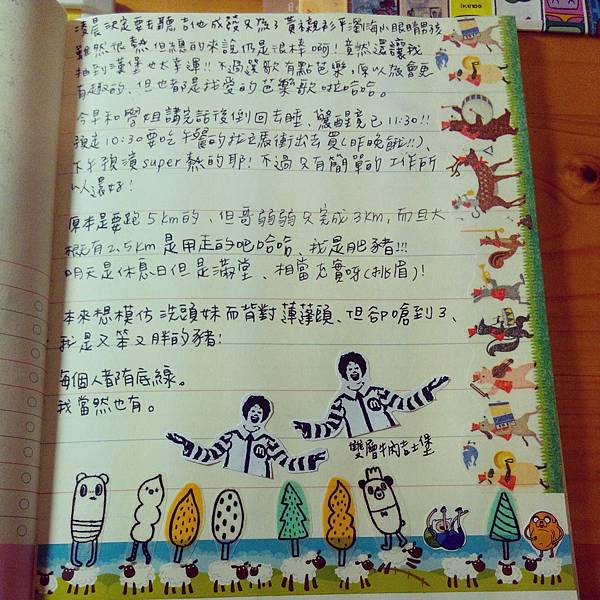 凌晨決定要去聽吉他成發只為了黃襯衫平瀏海小眼睛男孩
雖然很熱但總的來說仍是很棒啊！竟然還讓我
抽到漢堡也太幸運!! 不過選歌有點芭樂，原以為會更
有趣的、但也都是我愛的芭樂歌啦哈哈。
今早和學姐講完話後倒回去睡、驚醒竟已11:30!!
預定10:30要吃午餐的我立馬衝出去買(昨晚餓!!)、
下午預演super熱的耶! 不過又有簡單的工作所
以還好!
原本是要跑5km的、但哥弱弱只完成3km,而且大
概有2.5km是用走的吧哈哈、我是肥豬!!!
明天是休息日但是滿堂、相當充實呀(挑眉)!
本來想模仿洗頭妹而背對蓮蓬頭、但卻嗆到了、
我是又笨又胖的豬!
每個人都有底線。
我當然也有。
雙層牛肉吉士堡